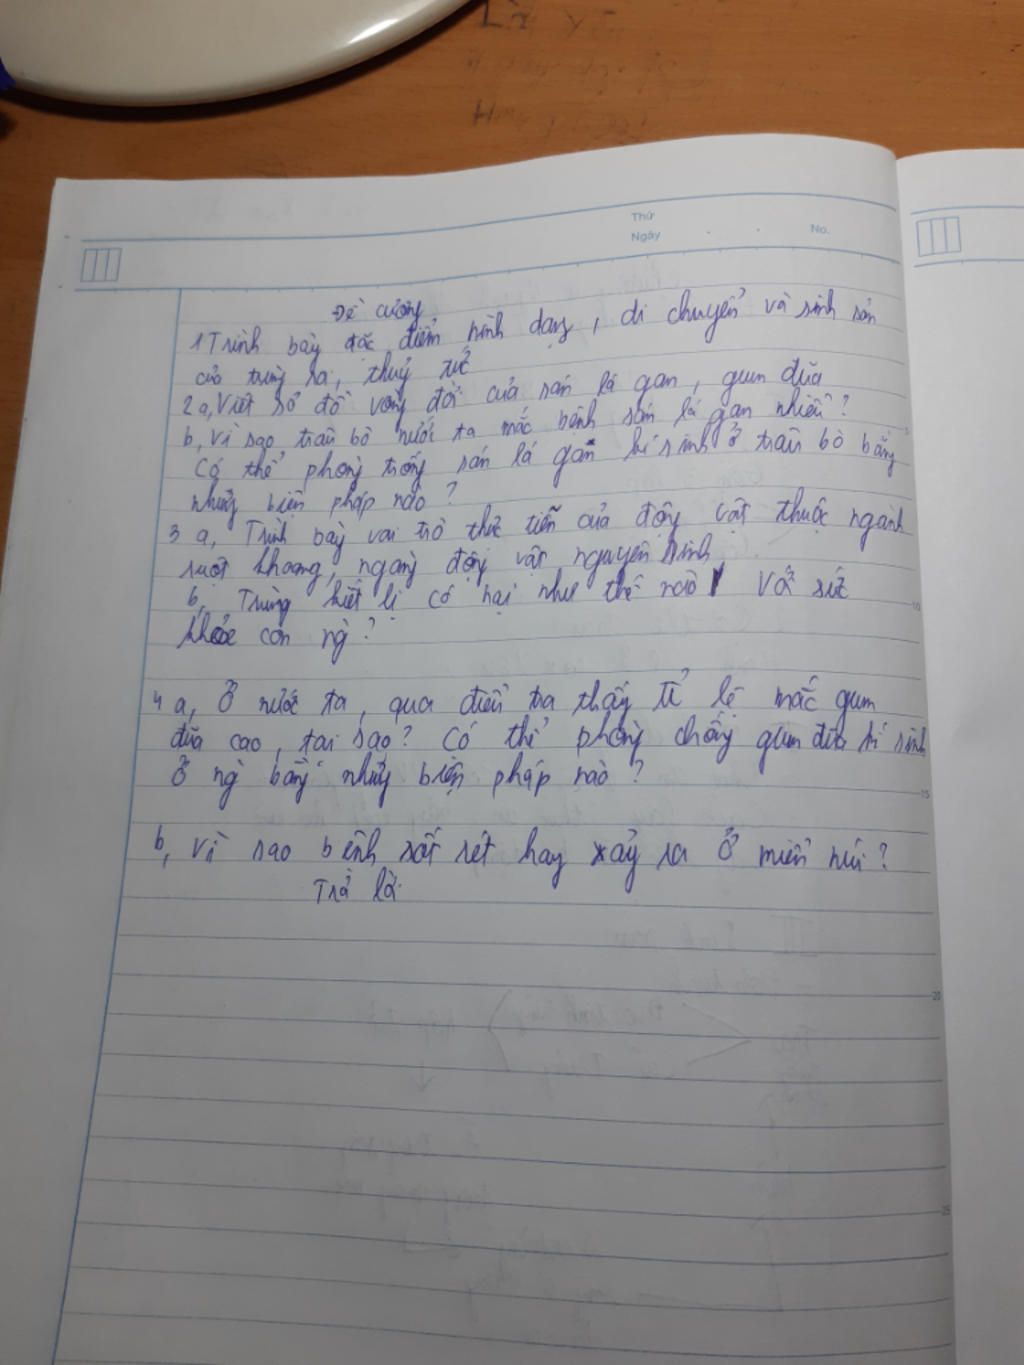 Thứ
Ngày
No.
Đề cương
1 Trình bày đặc điểm hình dạng, di chuyển và sinh sản
của trùng roi, thuỷ tức
2 a, Viết sơ đồ vòng đời của sán lá gan, giun đũa
b, Vì sao trâu bò nước ta mắc bệnh sán lá gan nhiều?
Có thể phòng trống sán lá gan kí sinh ở trâu bò bằng
những biện pháp nào?
3 a, Trình bày vai trò thực tiễn của động vật thuộc ngành
ruột khoang, ngành động vật nguyên sinh
b, Trùng kiết lị có hại như thế nào Vs sức
khỏe con ng?
4 a, Ở nước ta, qua điều tra thấy tỉ lệ mắc giun
đũa cao, tại sao? Có thể phòng chống giun đũa kí sinh
ở ng bằng những biện pháp nào?
b, Vì sao bệnh sốt rét hay xảy ra ở miền núi?
Trả lời